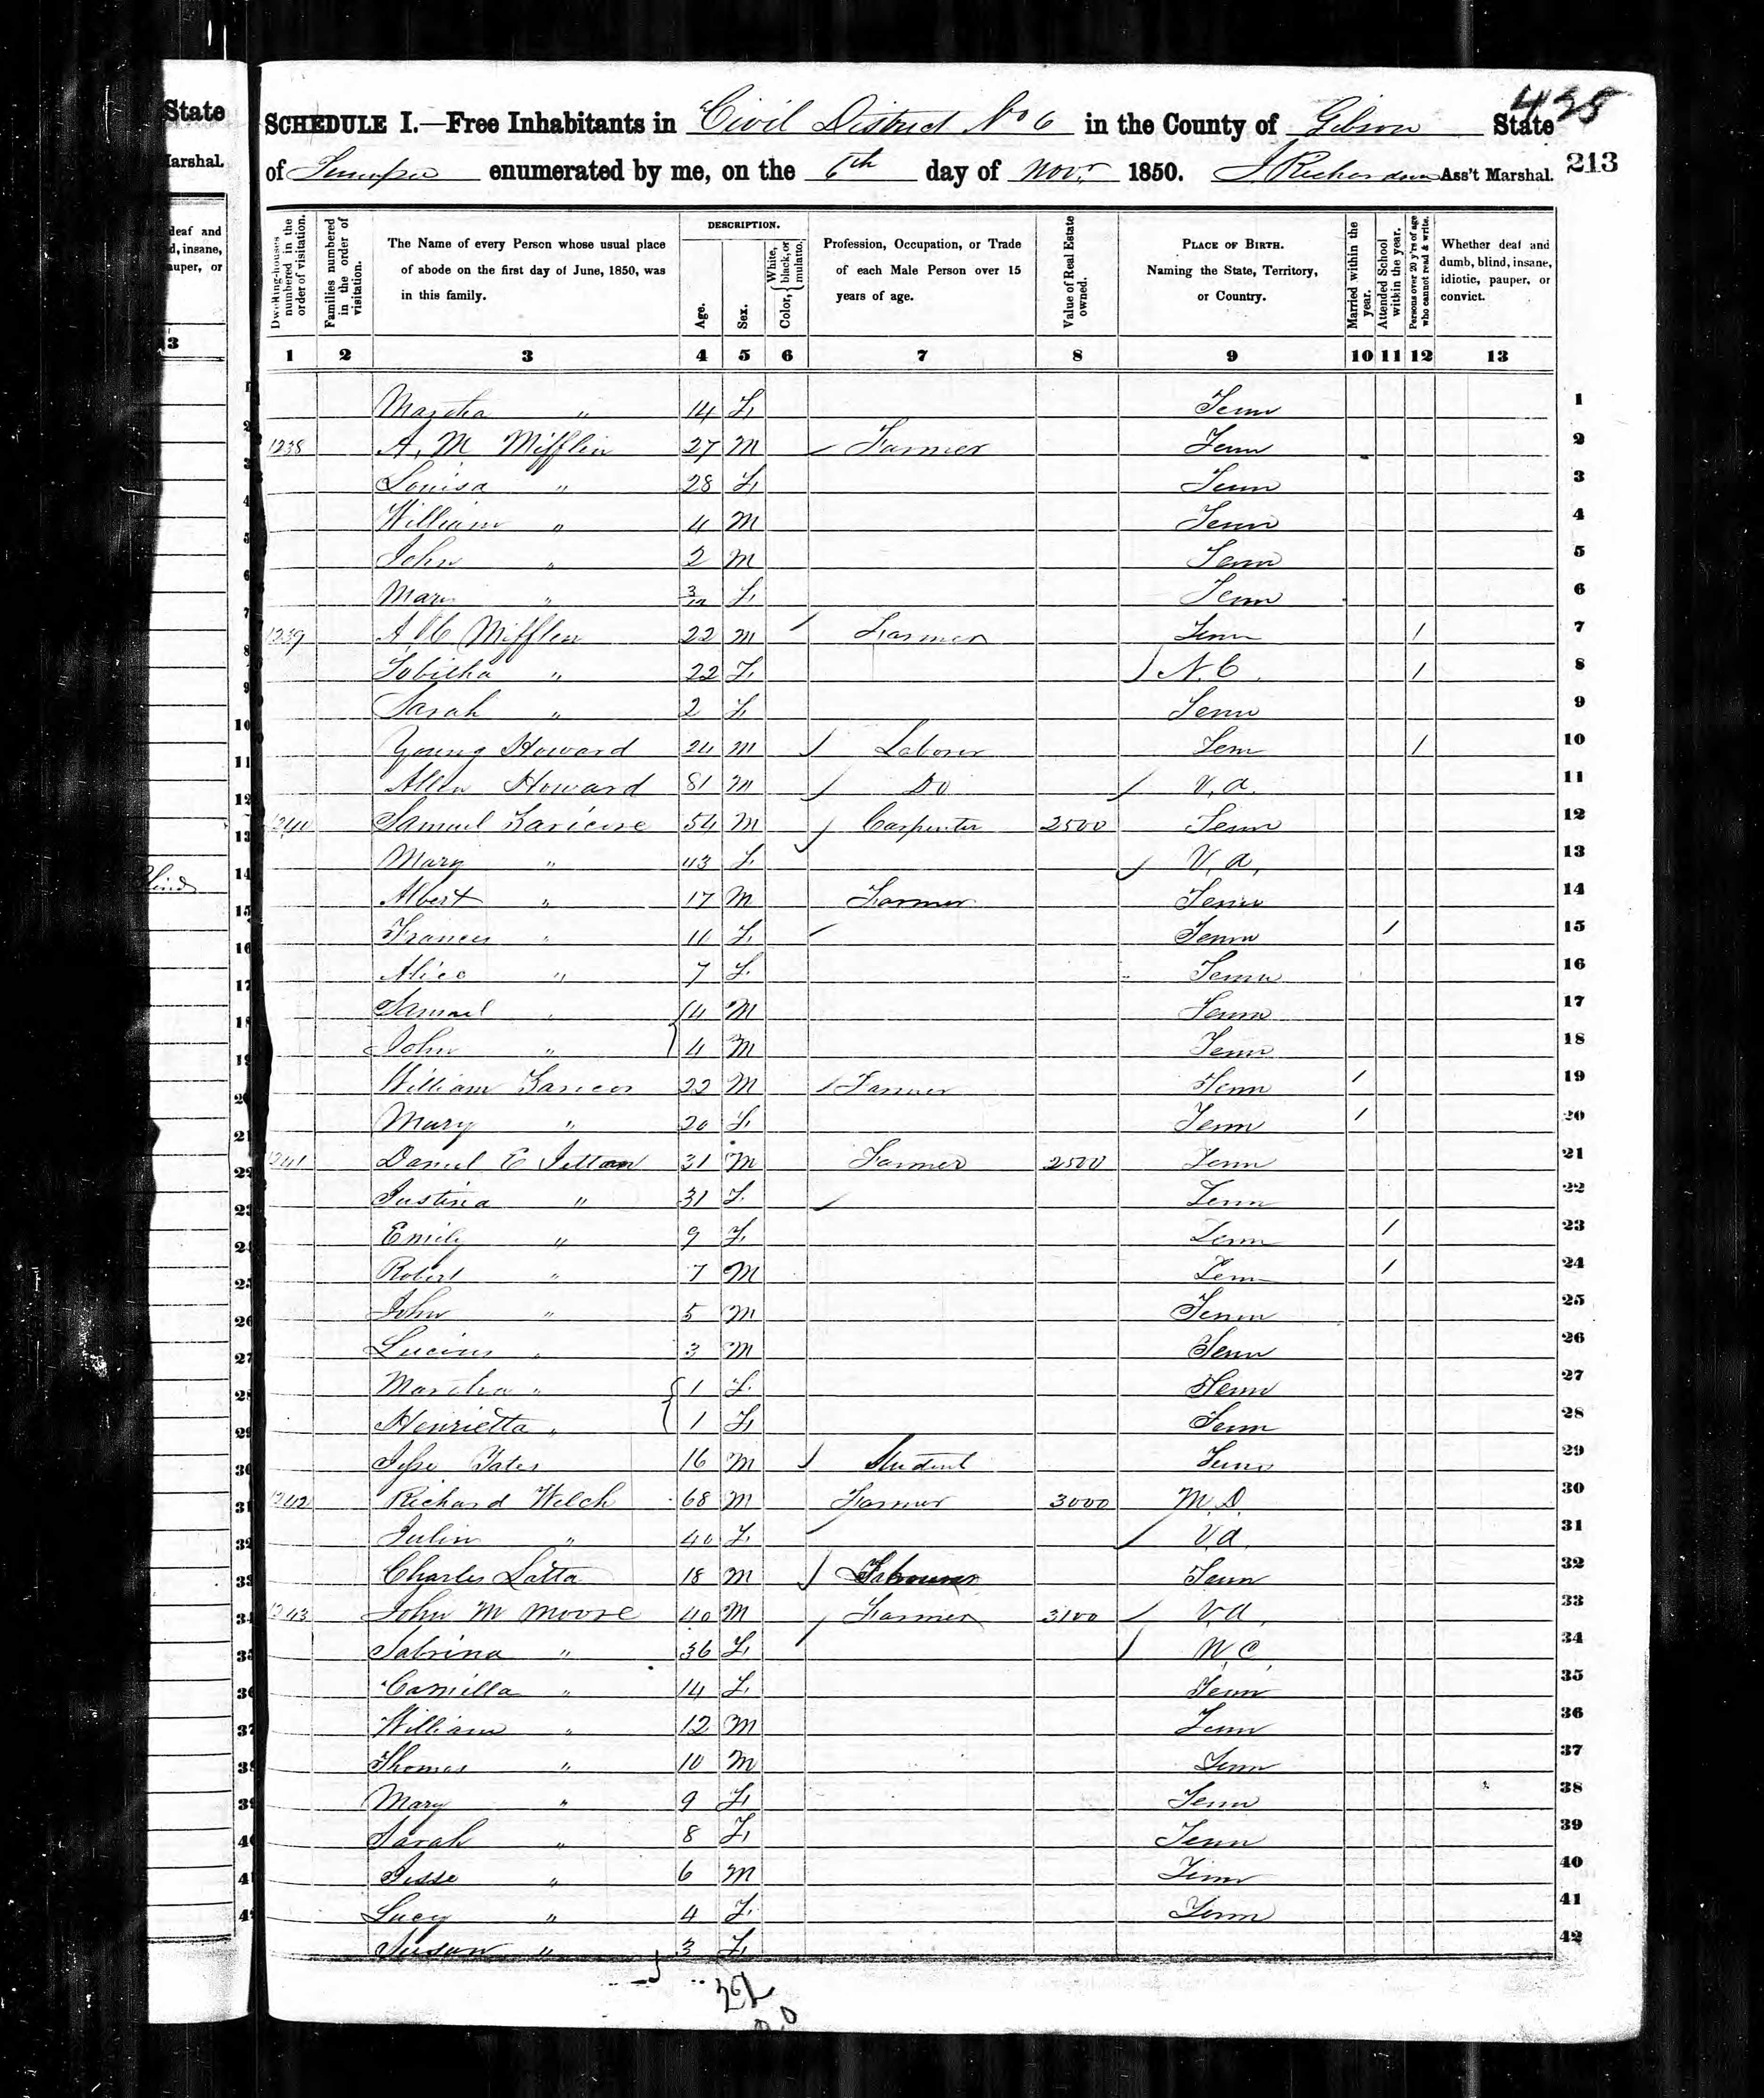 State
Marshal.
deaf and
d, insane,
auper, or
13
438
SCHEDULE I.—Free Inhabitants in Civil District No 6 in the County of Gibson State
of Tennessee enumerated by me, on the 6th day of Novr 1850. J. Richardson Ass't Marshal. 213
Dwelling-houses numbered in the order of visitation.
Families numbered in the order of visitation.
The Name of every Person whose usual place of abode on the first day of June, 1850, was in this family.
DESCRIPTION.
Age.
Sex.
Color, { White, black, or mulatto.
Profession, Occupation, or Trade of each Male Person over 15 years of age.
Value of Real Estate owned.
PLACE OF BIRTH. Naming the State, Territory, or Country.
Married within the year.
Attended School within the year.
Persons over 20 y'rs of age who cannot read & write.
Whether deaf and dumb, blind, insane, idiotic, pauper, or convict.
1 2 3 4 5 6 7 8 9 10 11 12 13
Martha " 14 F Tenn 1
1238 A. M Mifflin 27 M Farmer Tenn 2
Louisa " 28 F Tenn 3
William " 4 M Tenn 4
John " 2 M Tenn 5
Mary " 3/12 F Tenn 6
1239 Mifflin 22 M Farmer Tenn / 7
Tobitha " 22 F N. C. / 8
Sarah " 2 F Tenn 9
Young Howard 24 M Laborer Tenn / 10
Allen Howard 81 M Do V. a. 11
1240 Samuel 54 M Carpenter 2500 Tenn 12
Mary " 43 F V. a. 13
Albert " 17 M Farmer Tenn 14
Frances " 11 F Tenn / 15
Alice " 7 F Tenn 16
Samuel " 4 M Tenn 17
John " 4 M Tenn 18
William 22 M Farmer Tenn / 19
Mary " 20 F Tenn / 20
1241 Daniel E 31 M Farmer 2500 Tenn 21
Justina " 31 F Tenn 22
Emily " 9 F Tenn / 23
Robert " 7 M Tenn / 24
John " 5 M Tenn 25
Lucius " 3 M Tenn 26
Martha " 1 F Tenn 27
Henrietta " 1 F Tenn 28
Jesse Yates 16 M Student Tenn 29
1242 Richard Welch 68 M Farmer 3000 M. D. 30
" 40 F V. a. 31
Charles Latta 18 M Tenn 32
1243 John M Moore 40 M Farmer 3100 V. a. 33
Sabrina " 36 F N. C. 34
Camilla " 14 F Tenn 35
William " 12 M Tenn 36
Thomas " 10 M Tenn 37
Mary " 9 F Tenn 38
Sarah " 8 F Tenn 39
Jesse " 6 M Tenn 40
Lucy " 4 F Tenn 41
Susan " 3 F 42